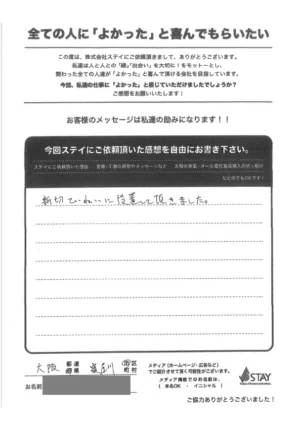 全ての人に「よかった」と喜んでもらいたい
この度は、株式会社ステイにご依頼頂きまして、ありがとうございます。
私達は人と人との「縁」「出会い」を大切に！をモットーとし、
関わった全ての人達が「よかった」と喜んで頂ける会社を目指しています。
今回、私達の仕事に「よかった」と感じていただけましたでしょうか？
ご感想をお願いいたします！
お客様のメッセージは私達の励みになります！！
今回ステイにご依頼頂いた感想を自由にお書き下さい。
ステイにご依頼頂いた理由
など何でもOKです！
親切ていねいに設置して頂きました。
大阪 都道府県 寝屋川 市区町村
お名前
メディア（ホームページ・広告など）
でご紹介させて頂く可能性がございます。
メディア掲載でのお名前は、
（ 本名OK ・ イニシャル ）
STAY
ご協力ありがとうございました！